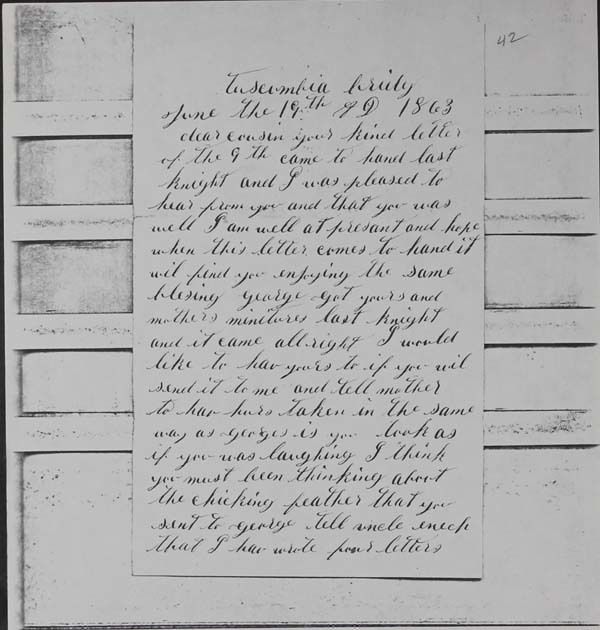 42
Tuscumbia bridg
June the 19th AD 1863
dear cousin your kind letter
of the 9th came to hand last
knight and I was pleased to
hear from you and that you was
well I am well at presant and hope
when this letter comes to hand it
wil find you enjoying the same
blesing george got yours and
mothers minitures last knight
and it came all right I would
like to hav yours to if you wil
send it to me and tell mother
to hav hurs taken in the same
way as georges is you look as
if you was laughing I think
you must been thinking about
the chicking feather that you
sent to george tell uncle
that I hav wrote four letters